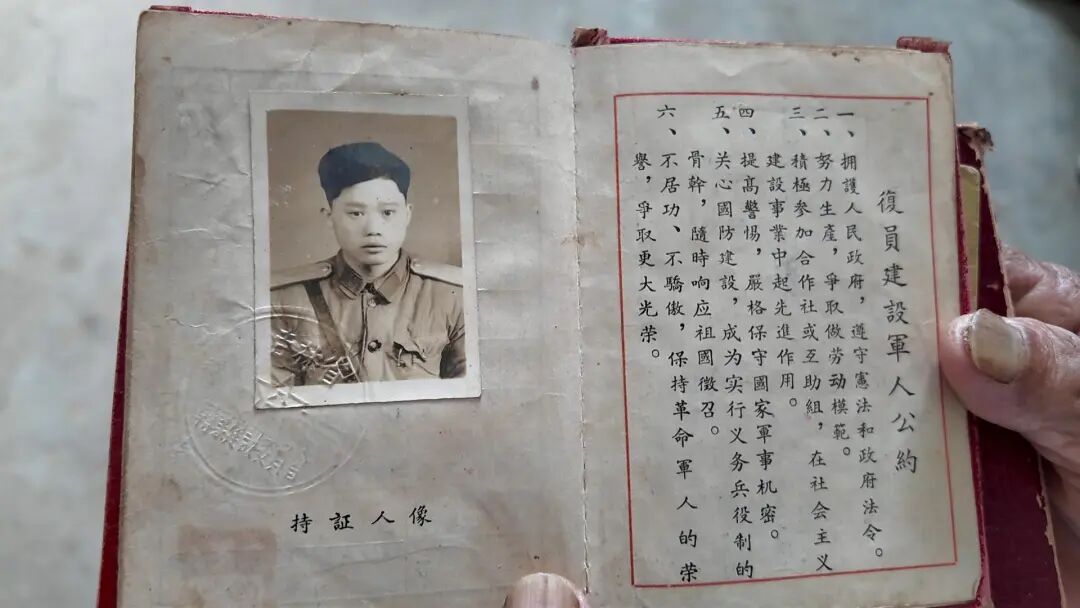 持証人像
復員建設軍人公約
一、拥護人民政府，遵守憲法和政府法令。
二、努力生產，爭取做劳动模範。
三、積極参加合作社或互助組，在社会主义
建設事業中起先進作用。
四、提高警惕，嚴格保守國家軍事机密。
五、关心國防建設，成为实行义务兵役制的
骨幹，隨時响应祖國徵召。
六、不居功、不驕傲，保持革命軍人的荣
譽，爭取更大光荣。